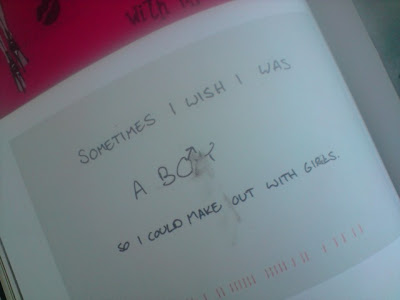 with
SOMETIMES I WISH I WAS
A BOY
SO I COULD MAKE OUT WITH GIRLS.